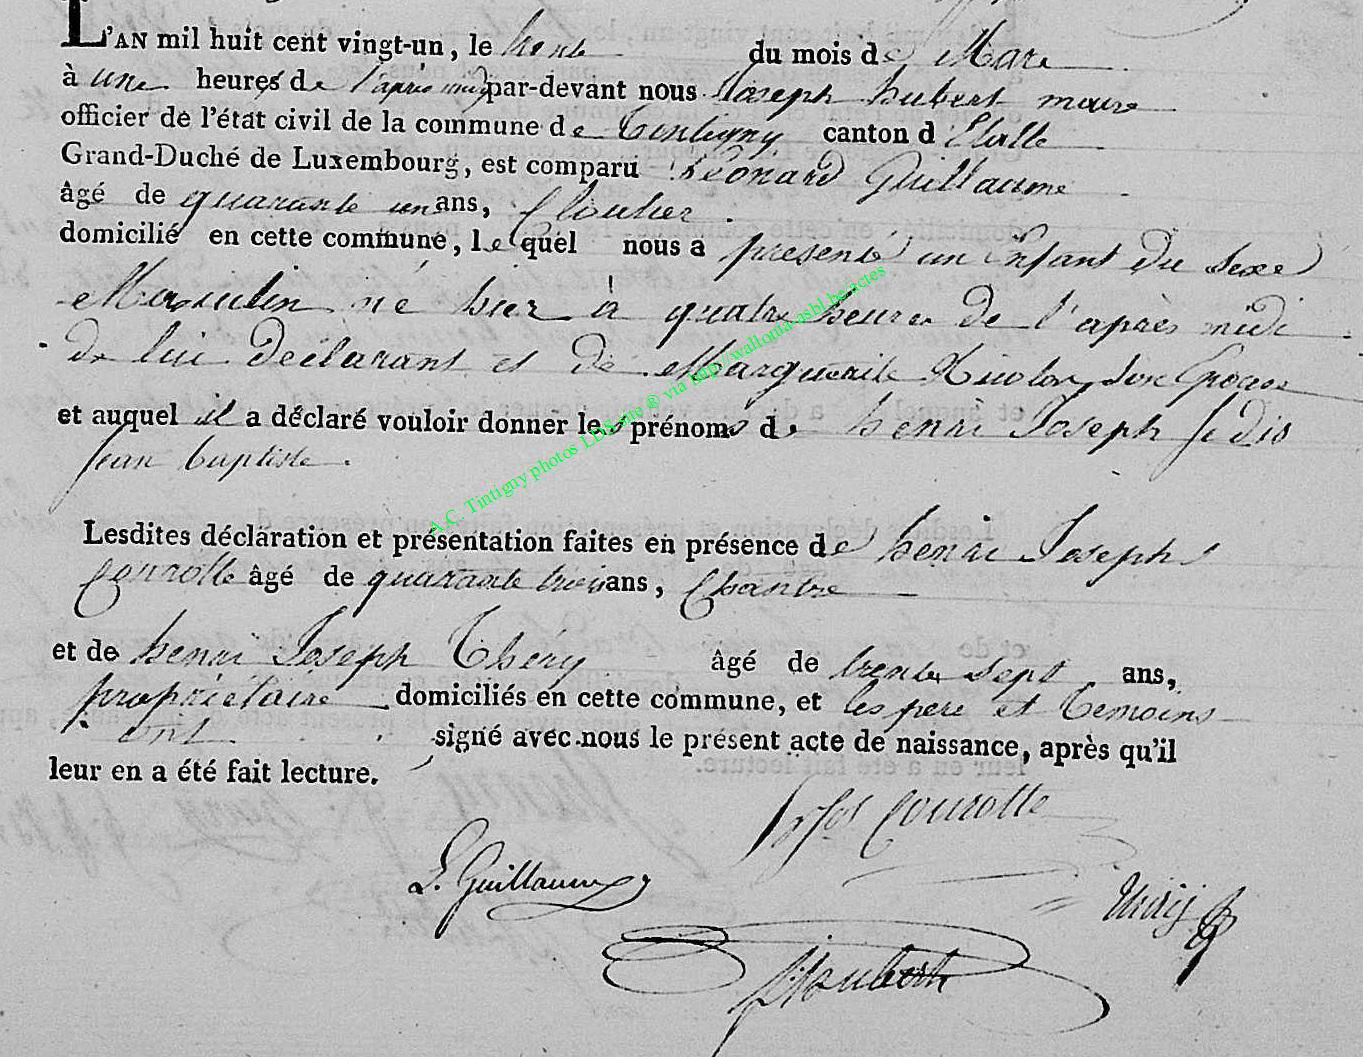 L'AN mil huit cent vingt-un, le trente du mois de Mars
à une heures de l'après midi par-devant nous Joseph hubert maire
officier de l'état civil de la commune de Tintigny canton d'Etalle
Grand-Duché de Luxembourg, est comparu Léonard Guillaume
âgé de quarante un ans, Cloutier.
domicilié en cette commune, lequel nous a presenté un Enfant du Sexe
Masculin né hier à quatre heures de l'après midi
de lui Déclarant et de Marguerite Nicolas, son Epouse
et auquel il a déclaré vouloir donner les prénoms de henri Joseph
jean baptiste.
Lesdites déclaration et présentation faites en présence de henri Joseph
Courotte âgé de quarante trois ans, Chantre
et de henri Joseph Théry âgé de trente sept ans,
propriétaire domiciliés en cette commune, et les pere et temoins
ont signé avec nous le présent acte de naissance, après qu'il
leur en a été fait lecture.
Courotte
L. Guillaume
Thiry
Houbert
A.C. Tintigny photos LDS site ® via http://wallonia-asbl.be/actes